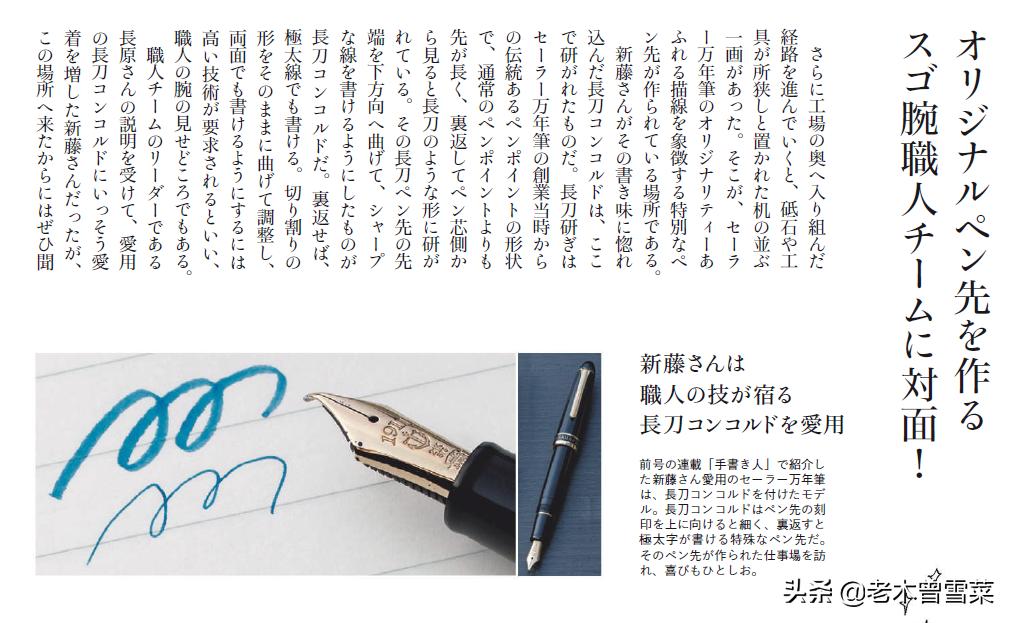 オリジナルペン先を作る
スゴ腕職人チームに対面！
さらに工場の奥へ入り組んだ
経路を進んでいくと、砥石や工
具が所狭しと置かれた机の並ぶ
一画があった。そこが、セーラ
ー万年筆のオリジナリティーあ
ふれる描線を象徴する特別なペ
ン先が作られている場所である。
新藤さんがその書き味に惚れ
込んだ長刀コンコルドは、ここ
で研がれたものだ。長刀研ぎは
セーラー万年筆の創業当時から
の伝統あるペンポイントの形状
で、通常のペンポイントよりも
先が長く、裏返してペン芯側か
ら見ると長刀のような形に研が
れている。その長刀ペン先の先
端を下方向へ曲げて、シャープ
な線を書けるようにしたものが
長刀コンコルドだ。裏返せば、
極太線でも書ける。切り割りの
形をそのままに曲げて調整し、
両面でも書けるようにするには
高い技術が要求されるといい、
職人の腕の見せどころでもある。
職人チームのリーダーである
長原さんの説明を受けて、愛用
の長刀コンコルドにいっそう愛
着を増した新藤さんだったが、
この場所へ来たからにはぜひ聞
新藤さんは
職人の技が宿る
長刀コンコルドを愛用
前号の連載「手書き人」で紹介し
た新藤さん愛用のセーラー万年筆
は、長刀コンコルドを付けたモデ
ル。長刀コンコルドはペン先の刻
印を上に向けると細く、裏返すと
極太字が書ける特殊なペン先だ。
そのペン先が作られた仕事場を訪
れ、喜びもひとしお。
头条 @老木曾雪菜